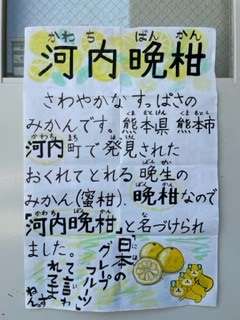 かわち ばんかん
河内晩柑
さわやかな すっぱさの
みかんです。熊本県 熊本市
河内町で発見された
おくれてとれる 晩生の
みかん(蜜柑). 晩柑なので
「河内晩柑」と名づけられ
ました。
「日本の
グレープ
フルーツ」
って言わ